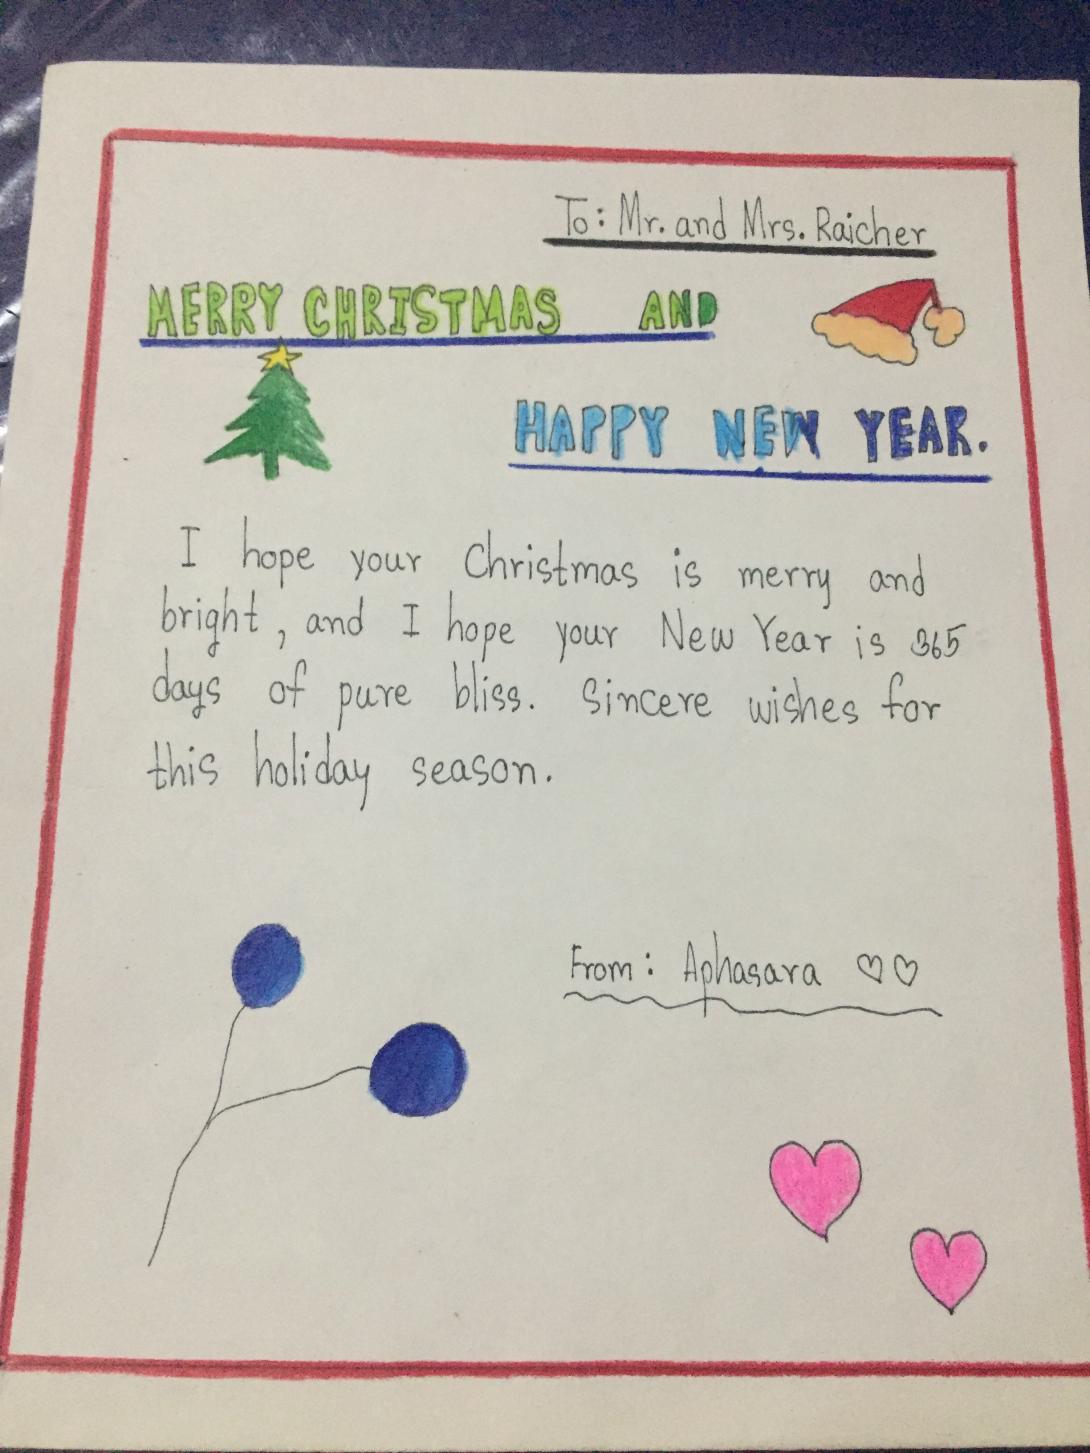 To: Mr. and Mrs. Raicher
MERRY CHRISTMAS AND
HAPPY NEW YEAR.
I hope your Christmas is merry and
bright, and I hope your New Year is 365
days of pure bliss. Sincere wishes for
this holiday season.
From: Aphasara ♡♡